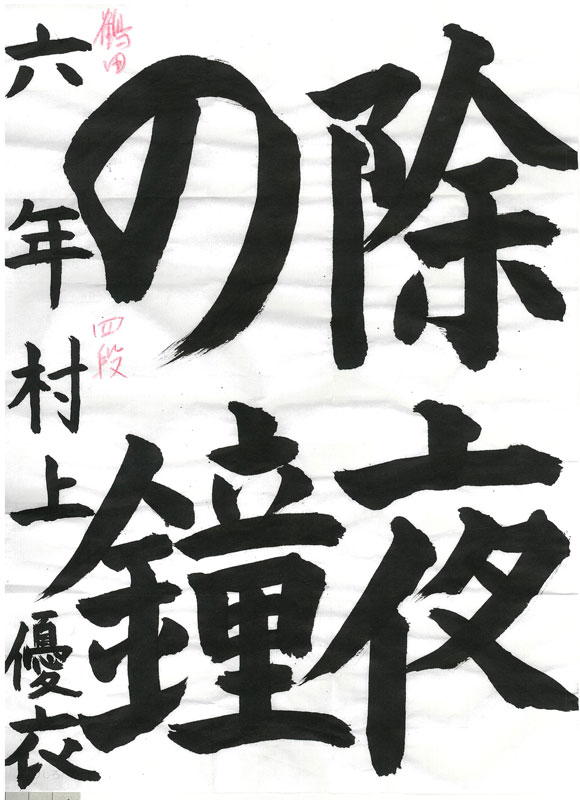 除夜
の鐘
鶴田
四段
六年村上優衣